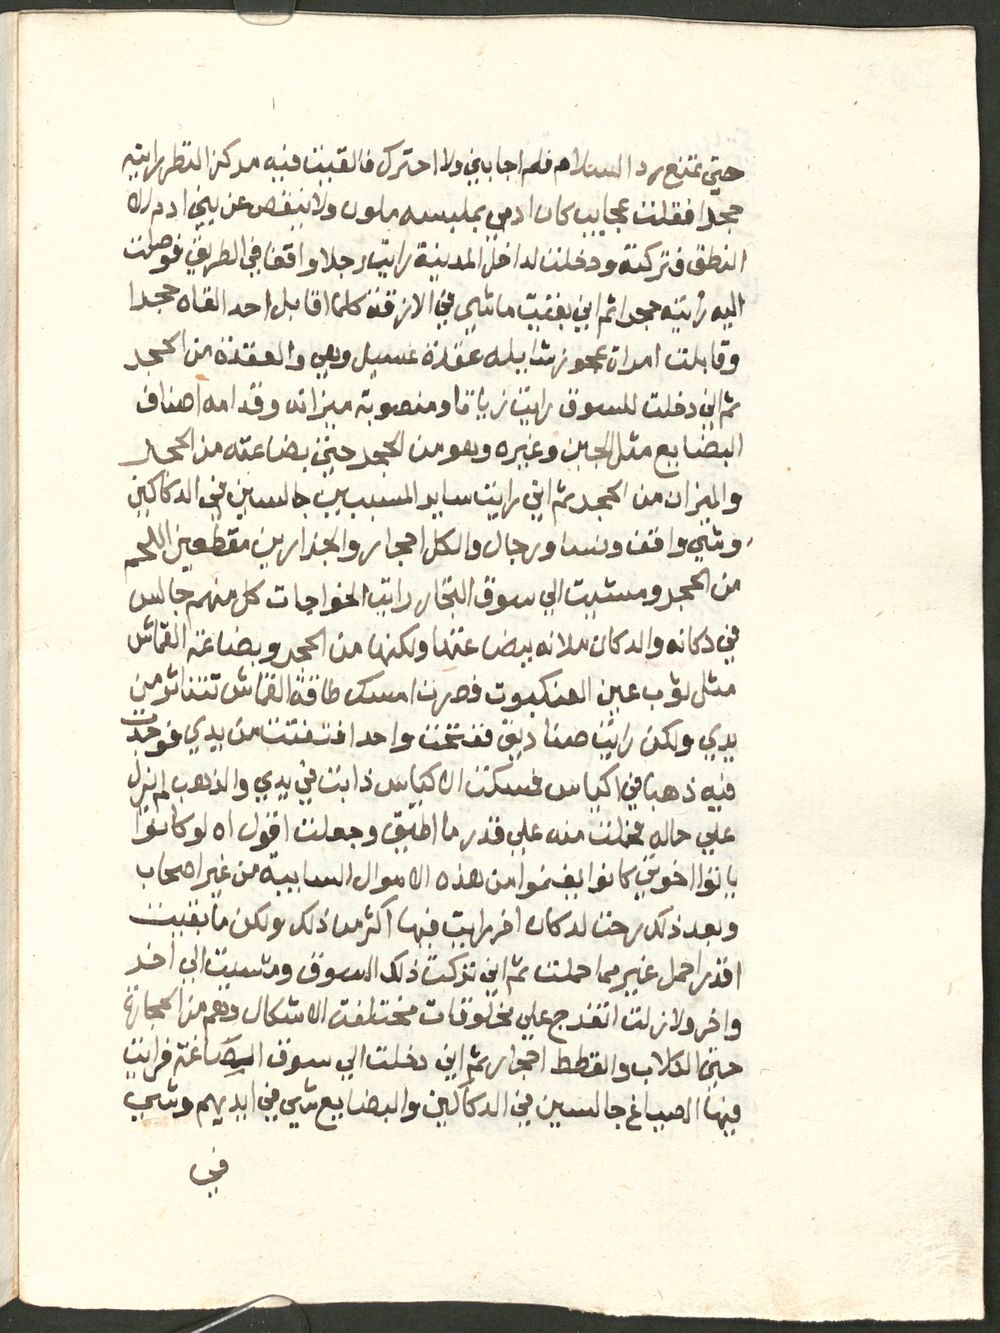 حتي تمنع رد السلام فلم اجابني ولا احترك فالقيت فيه مركز النظر رايته
حجرا فقلت عجايب كان ادمي بملبسه ملون ولا ينقص عن بني ادم الا
النطق فتركته ودخلت لداخل المدينة رايت رجلا واقفا في الطريق فوصلت
اليه رايته حجرا ثم اني بقيت ماشي في الازقه كلما اقابل احد القاه حجرا
وقابلت امراة عجوز شايله عقدة غسيل وهي والعقدة من الحجر
ثم اني دخلت للسوق رايت زياتا ومنصوبة ميزانه وقدامه اصناف
البضايع مثل الجبن وغيره وهو من الحجر حتي بضاعته من الحجر
والميزان من الحجر ثم اني رايت ساير المسببين جالسين في الدكاكين
وشي واقف ونسا ورجال والكل احجار والجزارين مقطعين اللحم
من الحجر ومشيت الي سوق التجار رايت الخواجات كل منهم جالس
في دكانه والدكان ملانه بضاعتها ولكنها من الحجر وبضاعة القماش
مثل ثوب عين العنكبوت فصرت امسك طاقة القماش تتناثر من
يدي ولكن رايت صناديق ففتحت واحدا فتفتت من يدي فوجدت
فيه ذهبا في اكياس فمسكت الاكياس ذابت في يدي والذهب لم يزل
علي حاله فحملت منه علي قدر ما اطيق وجعلت اقول اه لو كانوا
باتوا اخوتي كانوا يغنموا من هذه الاموال السايبة من غير اصحاب
وبعد ذلك رحت لدكان اخر رايت فيها اكثر من ذلك ولكن ما بقيت
اقدر احمل غير مما حملت ثم اني تركت ذلك السوق ومشيت الي اخر
واخر ولا زلت اتفرج علي مخلوقات مختلفة الاشكال وهم من الحجارة
حتي الكلاب والقطط احجار ثم اني دخلت الي سوق الصاغة فرايت
فيها الصياغ جالسين في الدكاكين والبضايع شي في ايديهم وشي
في